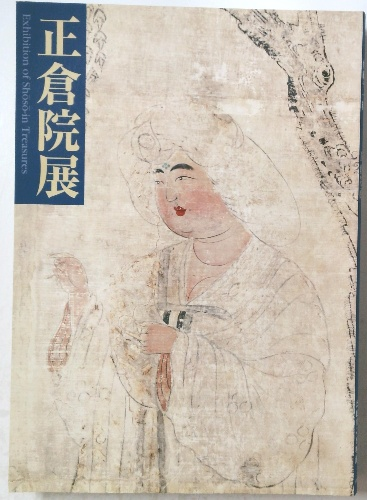 正倉院展
Exhibition of Shōsō-in Treasures